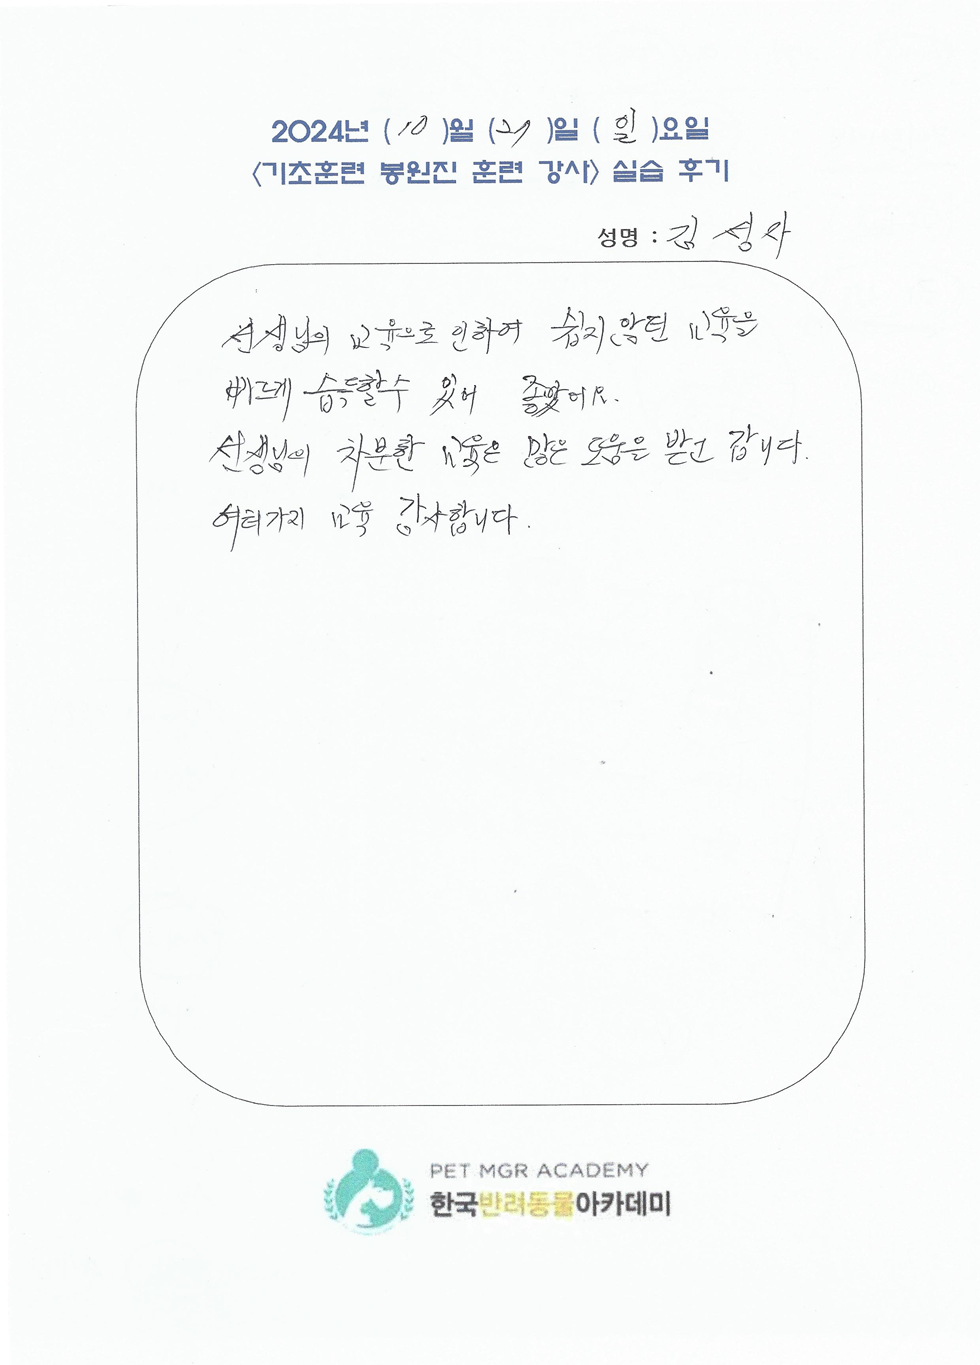 2024년 (10)월 (27)일 (일)요일
<기초훈련 봉원진 훈련 강사> 실습 후기
성명 : 김성자
선생님의 교육으로 인하여 쉽지않던 교육을
빠르게 습득할수 있어 좋았어요.
선생님의 차분한 교육은 많은 도움을 받고 갑니다.
여러가지 교육 감사합니다.
PET MGR ACADEMY
한국반려동물아카데미